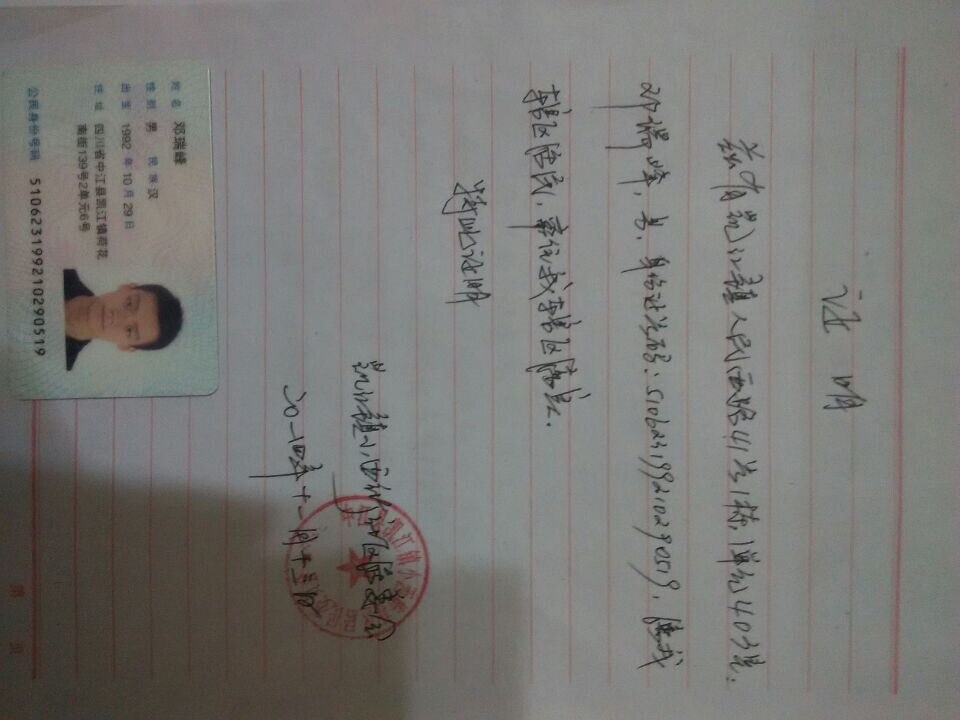 证明
兹有凯江镇人民西路41号1栋1单元403号.
邓瑞峰,男,身份证号码:510623199210290519,属我
辖区居民,座住我辖区属实.
特此证明
二〇一四年十一月十三日
姓名 邓瑞峰
性别 男 民族 汉
出生 1992 年 10 月 29 日
住址 四川省中江县凯江镇荷花
南街139号2单元6号
公民身份号码 510623199210290519
第 页